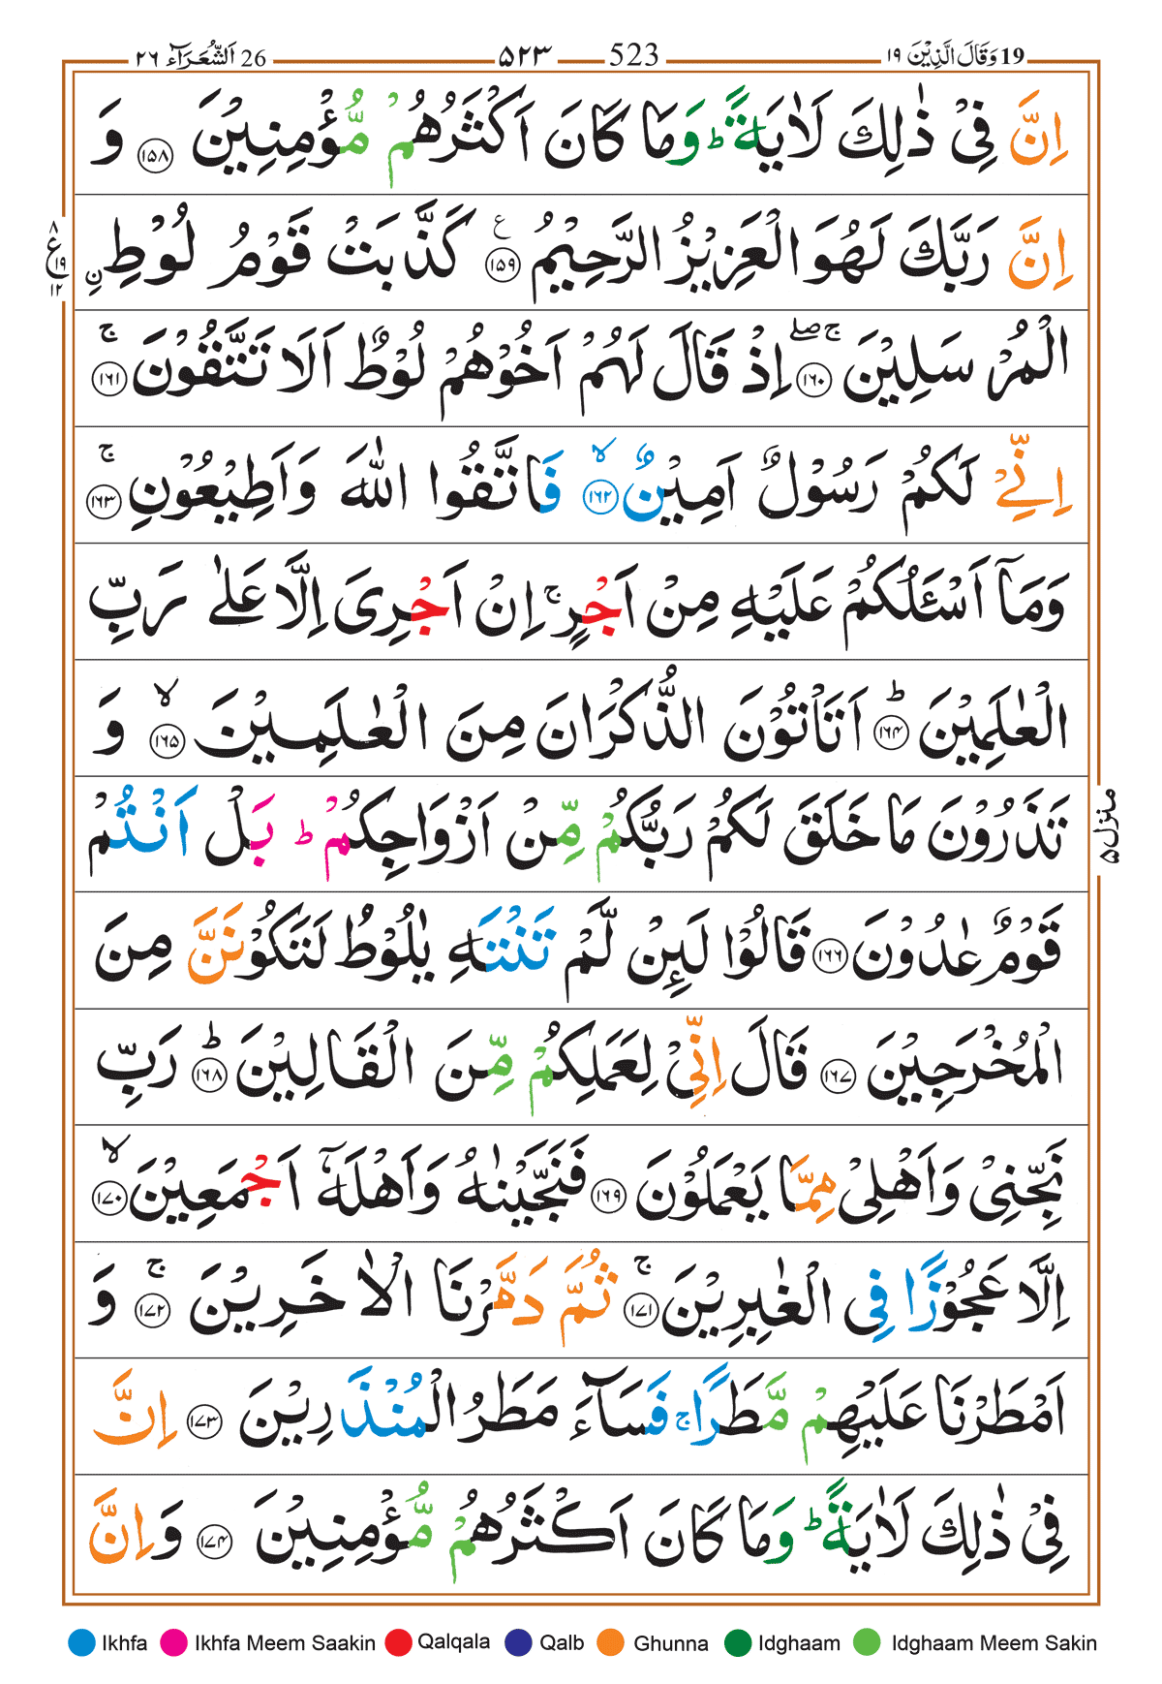 19 وَقَالَ الَّذِيْنَ ۱۹ 523 ۵۲۳ 26 اَلشُّعَرَآء ۲۶
اِنَّ فِيْ ذٰلِكَ لَاٰيَةً ؕ وَمَا كَانَ اَكْثَرُهُمْ مُّؤْمِنِيْنَ ۱۵۸ وَ
اِنَّ رَبَّكَ لَهُوَ الْعَزِيْزُ الرَّحِيْمُ ۱۵۹ ع كَذَّبَتْ قَوْمُ لُوْطِ ن
۸ ع ۱۹ ۱۲
الْمُرْسَلِيْنَ ۱۶۰ ج صلے اِذْ قَالَ لَهُمْ اَخُوْهُمْ لُوْطٌ اَلَا تَتَّقُوْنَ ۱۶۱ ج
اِنِّيْ لَكُمْ رَسُوْلٌ اَمِيْنٌ ۱۶۲ لا فَاتَّقُوا اللّٰهَ وَاَطِيْعُوْنِ ۱۶۳ ج
وَمَآ اَسْـَٔلُكُمْ عَلَيْهِ مِنْ اَجْرٍ ج اِنْ اَجْرِيَ اِلَّا عَلٰى رَبِّ
الْعٰلَمِيْنَ ۱۶۴ ؕ اَتَاْتُوْنَ الذُّكْرَانَ مِنَ الْعٰلَمِيْنَ ۱۶۵ لا وَ
تَذَرُوْنَ مَا خَلَقَ لَكُمْ رَبُّكُمْ مِّنْ اَزْوَاجِكُمْ ؕ بَلْ اَنْتُمْ
منزل ۵
قَوْمٌ عٰدُوْنَ ۱۶۶ قَالُوْا لَىِٕنْ لَّمْ تَنْتَهِ يٰلُوْطُ لَتَكُوْنَنَّ مِنَ
الْمُخْرَجِيْنَ ۱۶۷ قَالَ اِنِّيْ لِعَمَلِكُمْ مِّنَ الْقَالِيْنَ ۱۶۸ ؕ رَبِّ
نَجِّنِيْ وَاَهْلِيْ مِمَّا يَعْمَلُوْنَ ۱۶۹ فَنَجَّيْنٰهُ وَاَهْلَهٗٓ اَجْمَعِيْنَ ۱۷۰ لا
اِلَّا عَجُوْزًا فِي الْغٰبِرِيْنَ ۱۷۱ ج ثُمَّ دَمَّرْنَا الْاٰخَرِيْنَ ۱۷۲ ج وَ
اَمْطَرْنَا عَلَيْهِمْ مَّطَرًا ج فَسَآءَ مَطَرُ الْمُنْذَرِيْنَ ۱۷۳ اِنَّ
فِيْ ذٰلِكَ لَاٰيَةً ؕ وَمَا كَانَ اَكْثَرُهُمْ مُّؤْمِنِيْنَ ۱۷۴ وَاِنَّ
Ikhfa Ikhfa Meem Saakin Qalqala Qalb Ghunna Idghaam Idghaam Meem Sakin